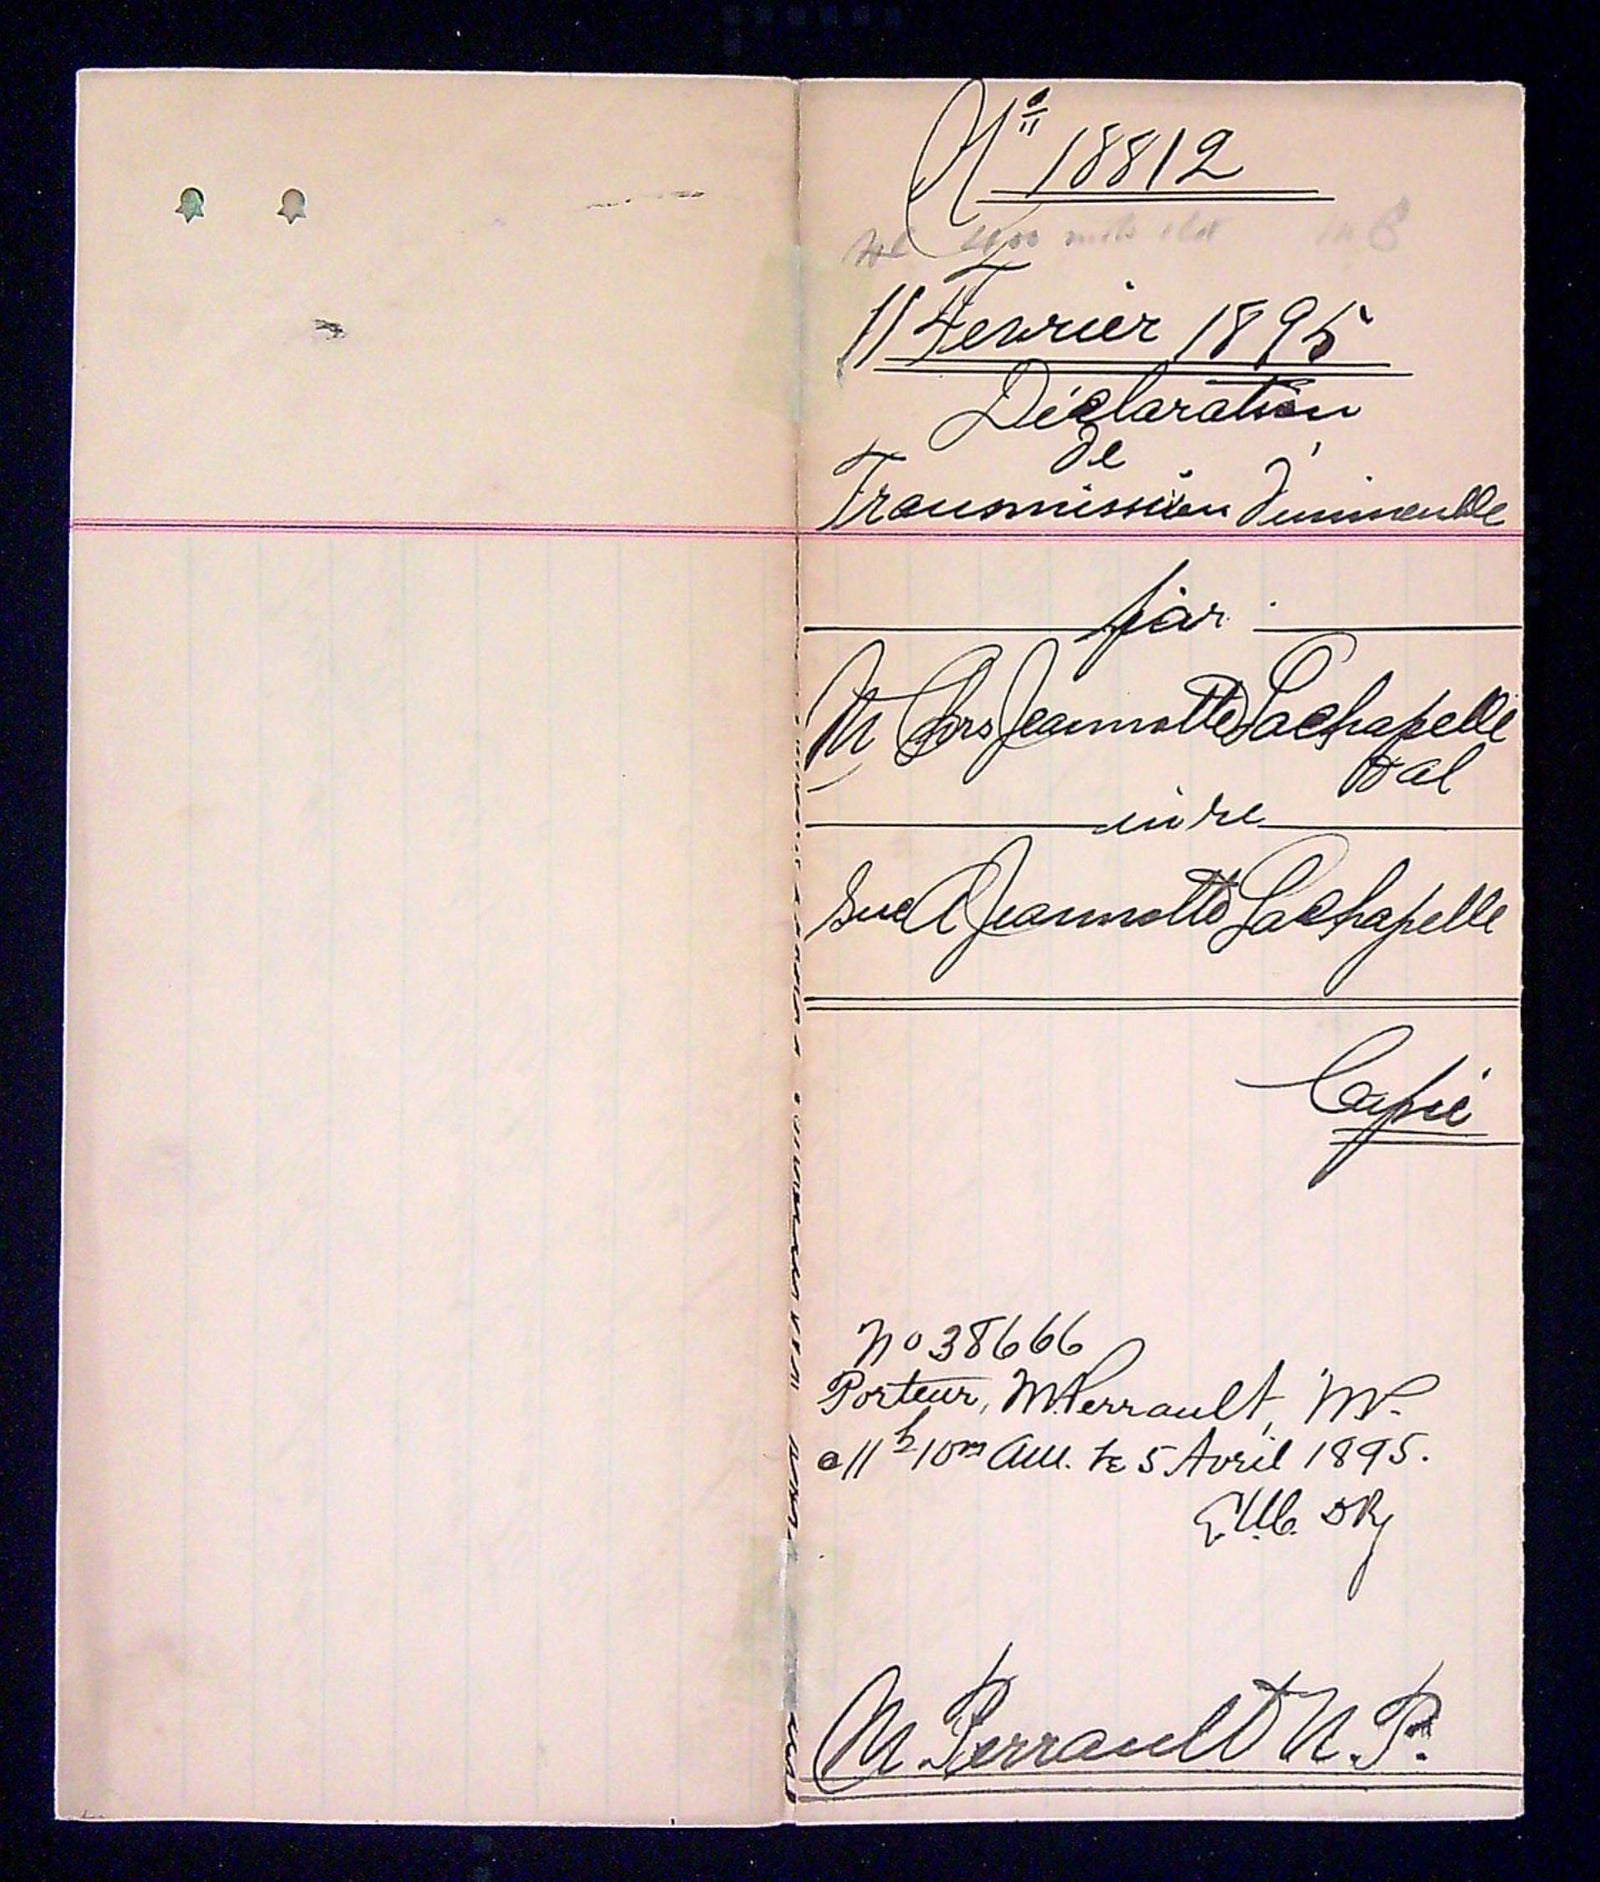 No 18812
11 Fevrier 1895
Déclaration
de
Transmission d'immeuble
par
M Chs Jeannotte Lachapelle
& al
in re
Suc A Jeannotte Lachapelle
Copie
No 38666
Porteur, M. Perrault, N.P.
a 11h 10m AM. le 5 Avril 1895.
M. Perrault N. P.